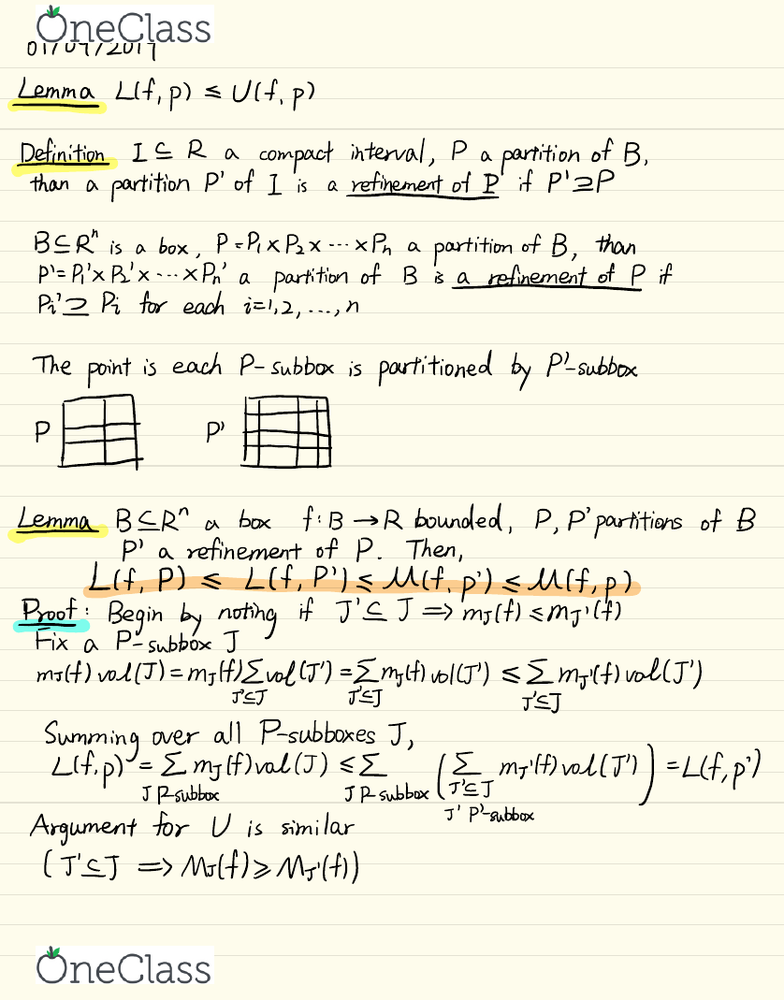 OneClass
01/09/2017
Lemma L(f,p) ≤ U(f,p)
Definition I ⊆ R a compact interval, P a partition of B,
than a partition P' of I is a refinement of P if P' ⊇ P
B ⊆ Rⁿ is a box, P = P₁ × P₂ × ··· × Pₙ a partition of B, than
P' = P₁' × P₂' × ··· × Pₙ' a partition of B is a refinement of P if
Pᵢ' ⊇ Pᵢ for each i=1,2, ..., n
The point is each P-subbox is partitioned by P'-subbox
P P'
Lemma B ⊆ Rⁿ a box f: B → R bounded, P, P' partitions of B
P' a refinement of P. Then,
L(f, P) ≤ L(f, P') ≤ U(f, p') ≤ U(f, p)
Proof: Begin by noting if J' ⊆ J ⟹ m_J(f) ≤ m_J'(f)
Fix a P-subbox J
m_J(f) vol(J) = m_J(f) Σ vol(J') = Σ m_J(f) vol(J') ≤ Σ m_J'(f) vol(J')
J'⊆J J'⊆J J'⊆J
Summing over all P-subboxes J,
L(f,p) = Σ m_J(f) vol(J) ≤ Σ ( Σ m_J'(f) vol(J') ) = L(f,p')
J P-subbox J P-subbox J'⊆J
J' P'-subbox
Argument for U is similar
(J' ⊆ J ⟹ M_J(f) ≥ M_J'(f))
OneClass